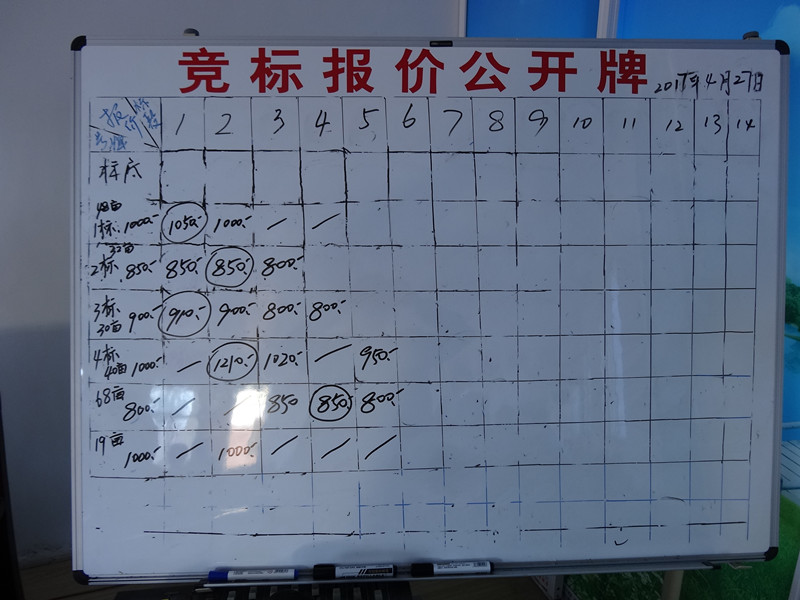 竞标报价公开牌
2017年4月27日
报价 号牌 1 2 3 4 5 6 7 8 9 10 11 12 13 14
标底
48亩
1标 1000.- 1050.- 1000.- / /
32亩
2标 850.- 850.- 850.- 800.-
3标
30亩 900.- 910.- 900.- 800.- 800.-
4标
40亩 1000.- / 1210.- 1020.- / 950.-
68亩
800.- / / 850 850.- 800.-
19亩
1000.- / 1000.- / / /